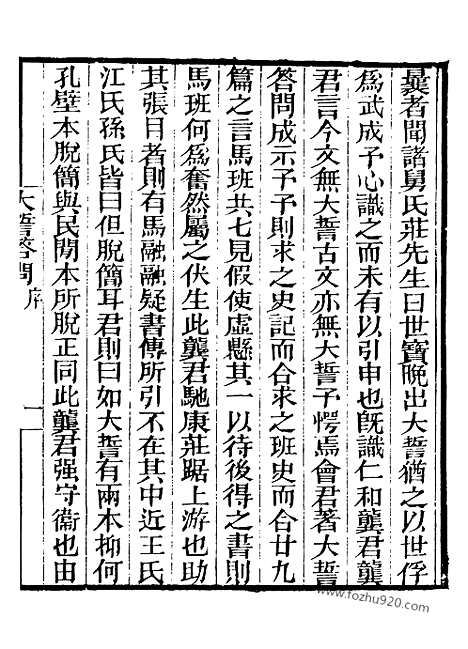 曩者聞諸舅氏莊先生曰世寶晚出大誓猶之以世俘
爲武成予心識之而未有以引申也旣識仁和龔君龔
君言今文無大誓古文亦無大誓予愕焉會君著大誓
答問成示予予則求之史記而合求之班史而合廿九
篇之言馬班共七見假使虛懸其一以待後得之書則
馬班何爲奮然屬之伏生此龔君馳康莊踞上游也助
其張目者則有馬融融疑書傳所引不在其中近王氏
江氏孫氏皆曰但脫簡耳君則曰如大誓有兩本抑何
孔壁本脫簡與民閒本所脫正同此龔君强守衞也由
大誓答問 序 一
www.fozhu920.com